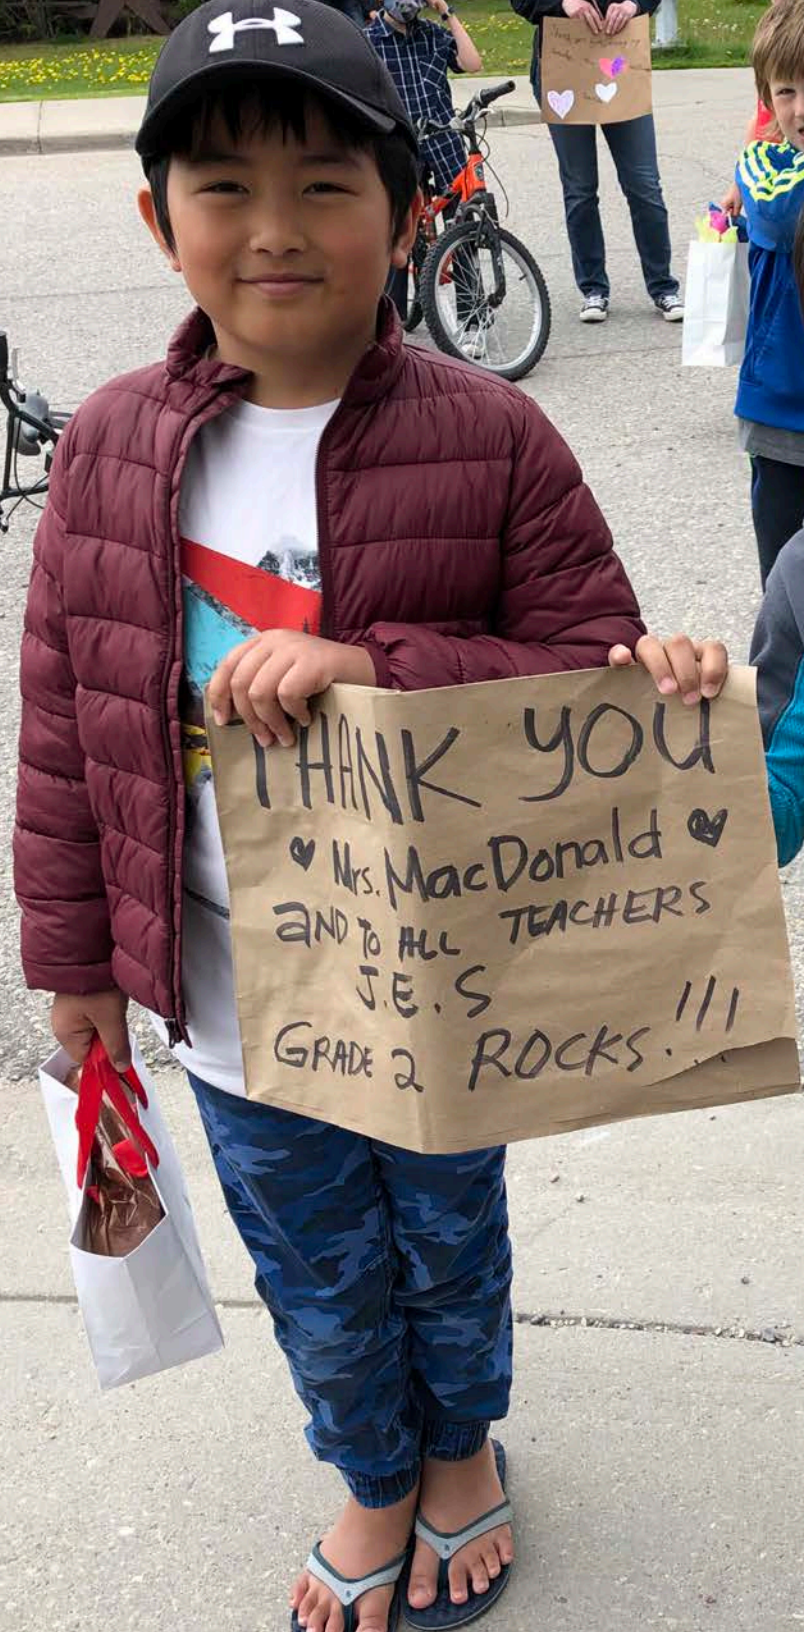 THANK YOU
♥ Mrs. MacDonald ♥
AND TO ALL TEACHERS
J.E.S
GRADE 2 ROCKS!!!